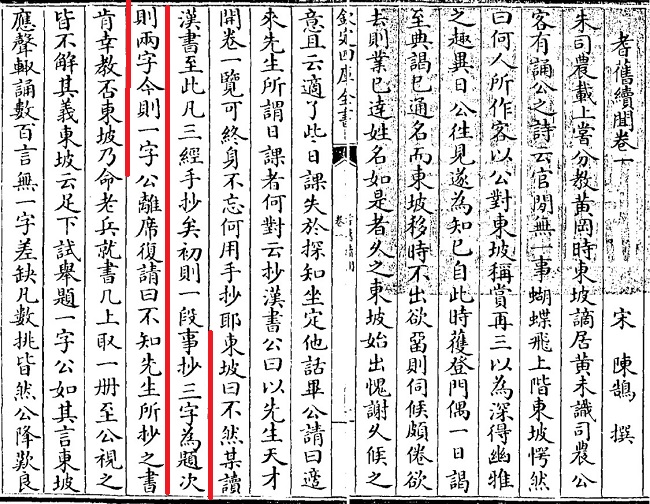 耆舊續聞卷一
宋 陳鵠 撰
朱司農載上嘗分教黃岡時東坡謫居黃未識司農公
客有誦公之詩云官閒無一事蝴蝶飛上階東坡愕然
曰何人所作客以公對東坡稱賞再三以為深得幽雅
之趣異日公往見遂為知已自此時獲登門偶一日謁
至典謁已通名而東坡移時不出欲留則伺候頗倦欲
去則業已達姓名如是者久之東坡始出愧謝久候之
欽定四庫全書
意且云適了此日課失於探知坐定他話畢公請曰適
來先生所謂日課者何對云抄漢書公曰以先生天才
開卷一覽可終身不忘何用手抄耶東坡曰不然某讀
漢書至此凡三經手抄矣初則一段事抄三字為題次
則兩字今則一字公離席復請曰不知先生所抄之書
肯幸教否東坡乃命老兵就書几上取一冊至公視之
皆不解其義東坡云足下試舉題一字公如其言東坡
應聲輒誦數百言無一字差缺凡數挑皆然公降歎良